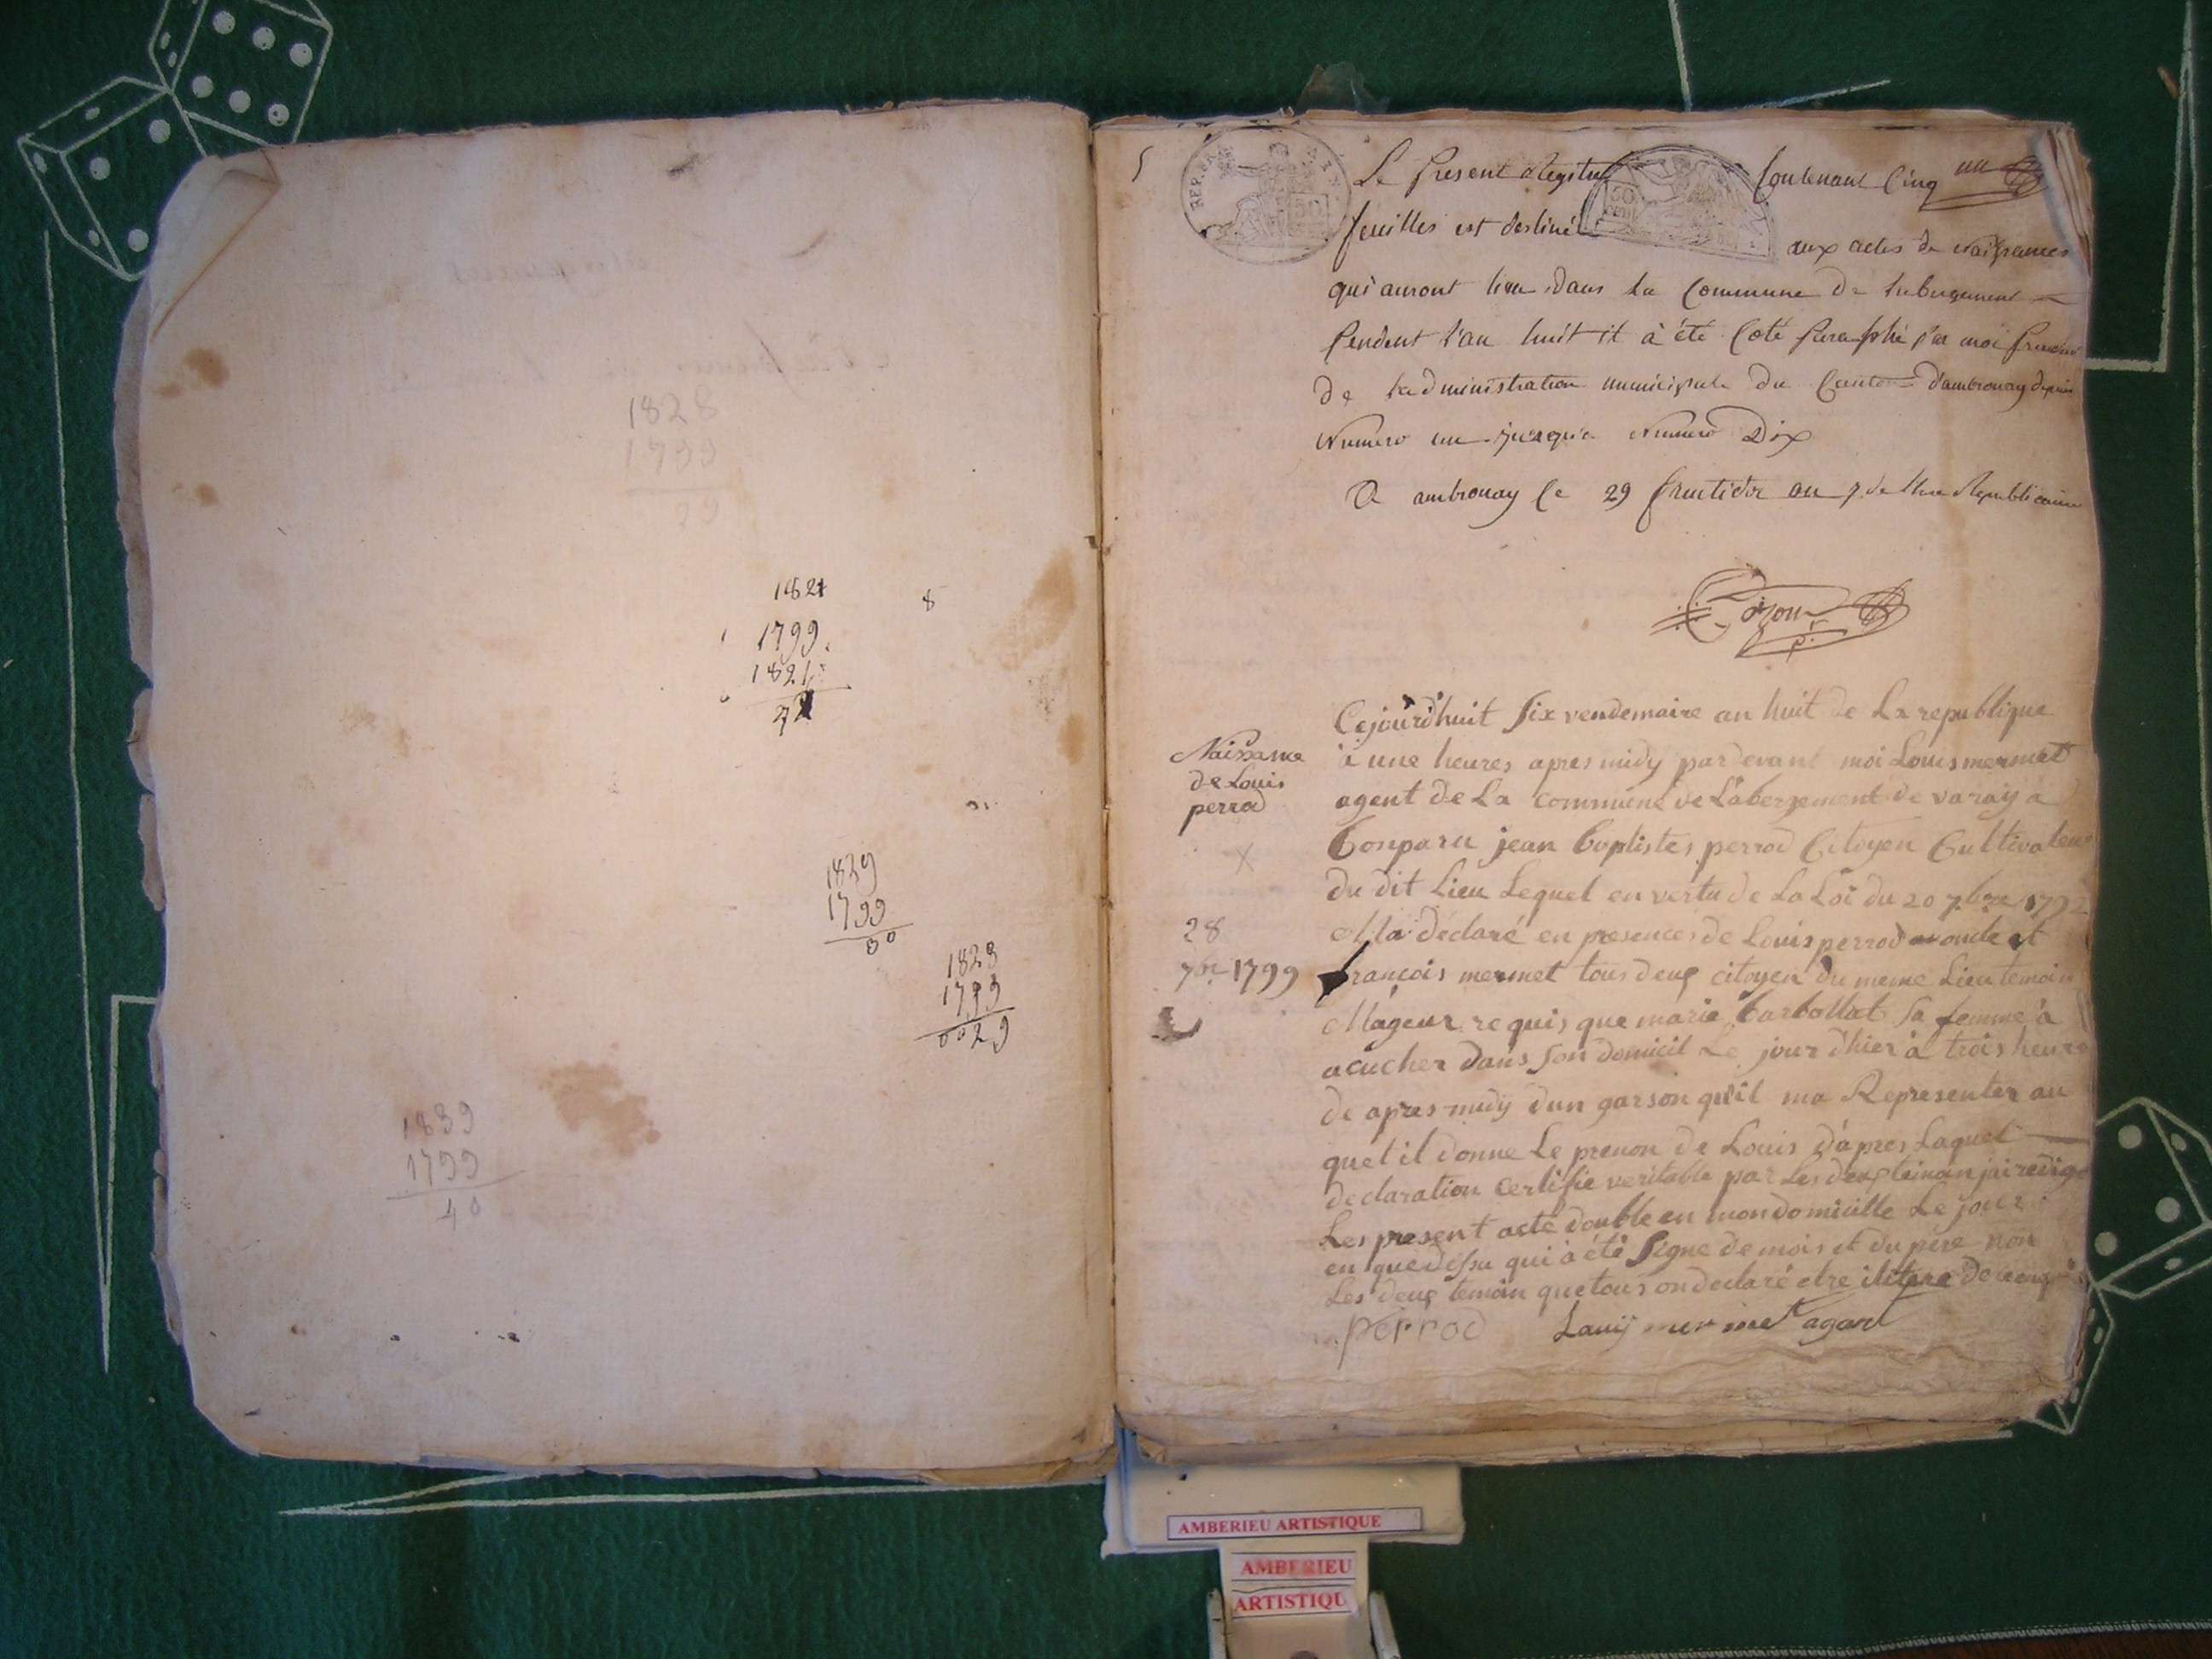 1828
1799
29
1821
8
1799
1821
1829
1799
30
1828
1799
0029
1839
1799
40
5
REP. FRA
Le Present Registre Contenant Cinq
feuilles est destiné
50
aux actes de Naissances
qui auront lieu dans la Commune de Labergement
Pendent l'an huit il à été Coté Paraphé par moi
de Ladministration municipale du Canton d'ambronay depuis
Numero un jusqu'a Numero Dix
A ambronay le 29 fructidor an 7 de Republicaine
Cejourd'huit six vendemaire an huit de La republique
Naissance
à une heures apres midy pardevant moi Louis mermet
de Louis
agent de La commune de Labergement de varay a
perrod
Conparu jean baptistes perrod Citoyen Cultivateur
X
du dit Lieu Lequel en vertu de La Loi du 20 7bre 1792
28
Ma déclaré en presences de Louis perrod oncle et
7bre 1799
françois mermet tous deux citoyen du meme Lieu temoin
Mageur requis que marie barbollat sa femme à
acucher dans son domicil Le jour d'hier à trois heure
de apres midy dun garson quil ma Representer au
quel il donne Le prenon de Louis d'apres Laquel
declaration certifie veritable par Les deux teimoin jai redige
Les present acte double en mon domicille Le jour
en que dessu qui à été signe de mois et du pere non
Les deux temoin que tous on declaré etre ilitere de
perrod Louis mermet agant
AMBERIEU ARTISTIQUE
AMBERIEU
ARTISTIQU